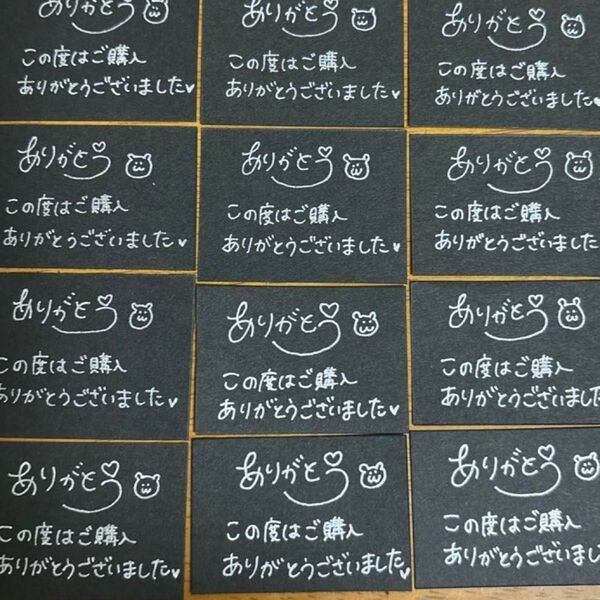 ありがとう
この度はご購入
ありがとうございました♥
ありがとう
この度はご購入
ありがとうございました♥
ありがとう
この度はご購入
ありがとうございました♥
ありがとう
この度はご購入
ありがとうございました♥
ありがとう
この度はご購入
ありがとうございました♥
ありがとう
この度はご購入
ありがとうございました
ありがとう
この度はご購入
ありがとうございました♥
ありがとう
この度はご購入
ありがとうございました♥
ありがとう
この度はご購入
ありがとうございました
ありがとう
この度はご購入
ありがとうございました♥
ありがとう
この度はご購入
ありがとうございました♥
ありがとう
この度はご購入
ありがとうございまし